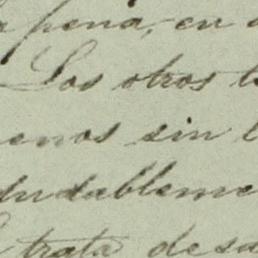 pena, en
Los otros
enos sin
dudableme
trata de su